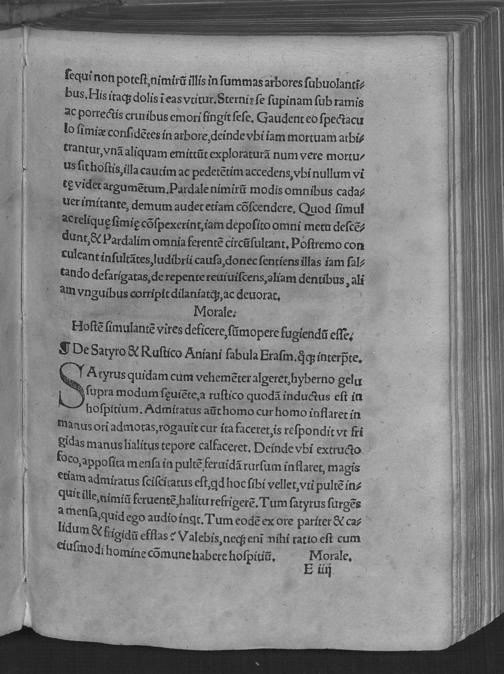 sequi non potest, nimirū illis in summas arbores subuolanti⸗
bus. His itaq; dolis ī eas vtitur. Sternit se supinam sub ramis
ac porrectis cruribus emori fingit sese. Gaudent eo spectacu
lo simiæ considētes in arbore, deinde vbi iam mortuam arbi⸗
trantur, vnā aliquam emittūt exploraturā num vere mortu⸗
us sit hostis, illa cautim ac pedetētim accedens, vbi nullum vi
tę videt argumētum. Pardale nimirū modis omnibus cada⸗
uer imitante, demum audet etiam cōscendere. Quod simul
ac reliquę simię cōspexerint, iam deposito omni metu descē⸗
dunt, & Pardalim omnia ferentē circūsultant. Postremo con
culcant insultātes, ludibrii causa, donec sentiens illas iam sal⸗
tando defatigatas, de repente reuiuiscens, aliam dentibus, ali
am vnguibus corripit dilaniatq;, ac deuorat.
Morale.
Hostē simulantē vires deficere, sūmopere fugiendū esse.
¶ De Satyro & Rustico Aniani fabula Erasm. q̄q; interp̄te.
SAtyrus quidam cum vehemēter algeret, hyberno gelu
supra modum sęuiēte, a rustico quodā inductus est in
hospitium. Admiratus aūt homo cur homo inflaret in
manus ori admotas, rogauit cur ita faceret, is respondit vt fri
gidas manus halitus tepore calfaceret. Deinde vbi extructo
foco, apposita mensa in pultē feruidā rursum inflaret, magis
etiam admiratus sciscitatus est, qd hoc sibi vellet, vti pultē in⸗
quit ille, nimiū feruentē, halitu refrigerē. Tum satyrus surgēs
a mensa, quid ego audio inqt. Tum eodē ex ore pariter & ca⸗
lidum & frigidū efflas? Valebis, neq; eni mihi ratio est cum
eiusmodi homine cōmune habere hospitiū. Morale.
E iiij